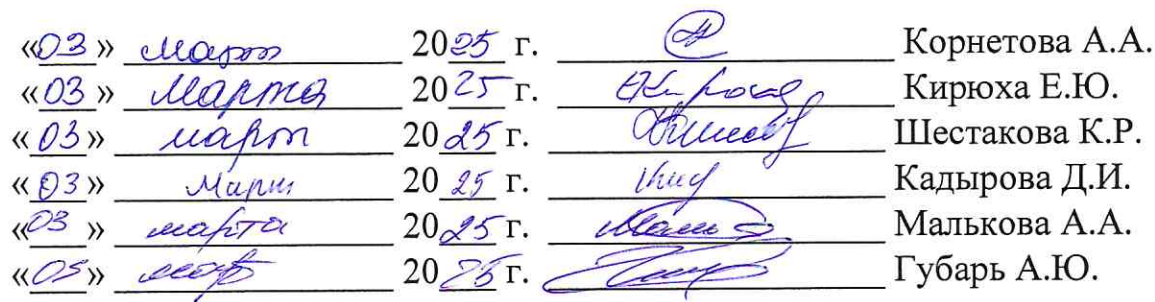 «03» март 2025 г. Корнетова А.А.
«03» Марта 2025 г. Кирюха Е.Ю.
«03» март 2025 г. Шестакова К.Р.
«03» Март 2025 г. Кадырова Д.И.
«03» марта 2025 г. Малькова А.А.
«05» 2025 г. Губарь А.Ю.